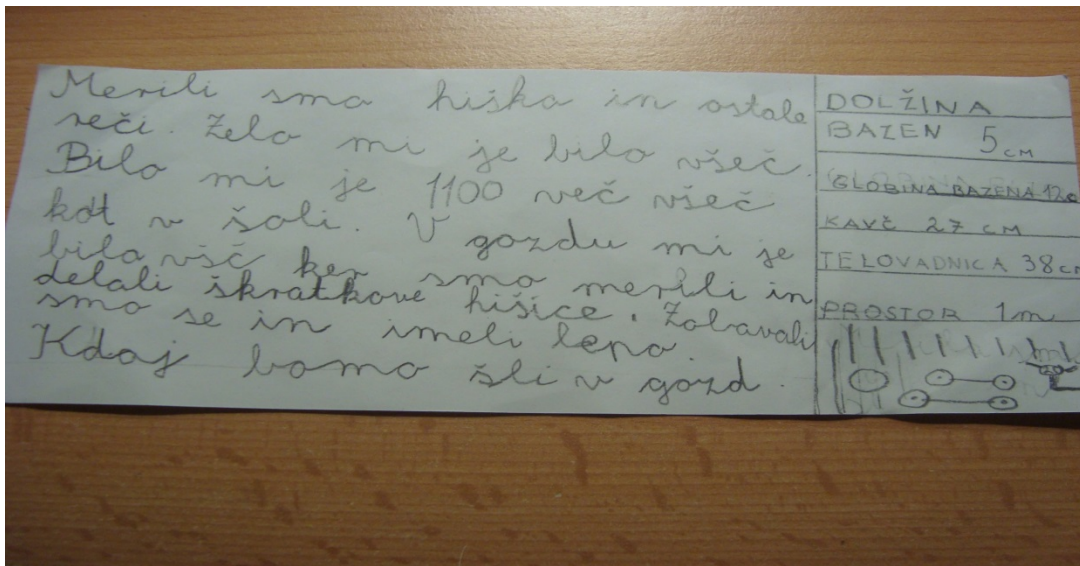 Merili smo hiško in ostale
reči. Zelo mi je bilo všeč.
Bilo mi je 1100 več všeč
kot v šoli. V gozdu mi je
bilo všč ker smo merili in
delali škratkove hišice. Zabavali
smo se in imeli lepo.
Kdaj bomo šli v gozd.
DOLŽINA
BAZEN 5 CM
GLOBINA BAZENA 12c
KAVČ 27 CM
TELOVADNICA 38 cm
PROSTOR 1m